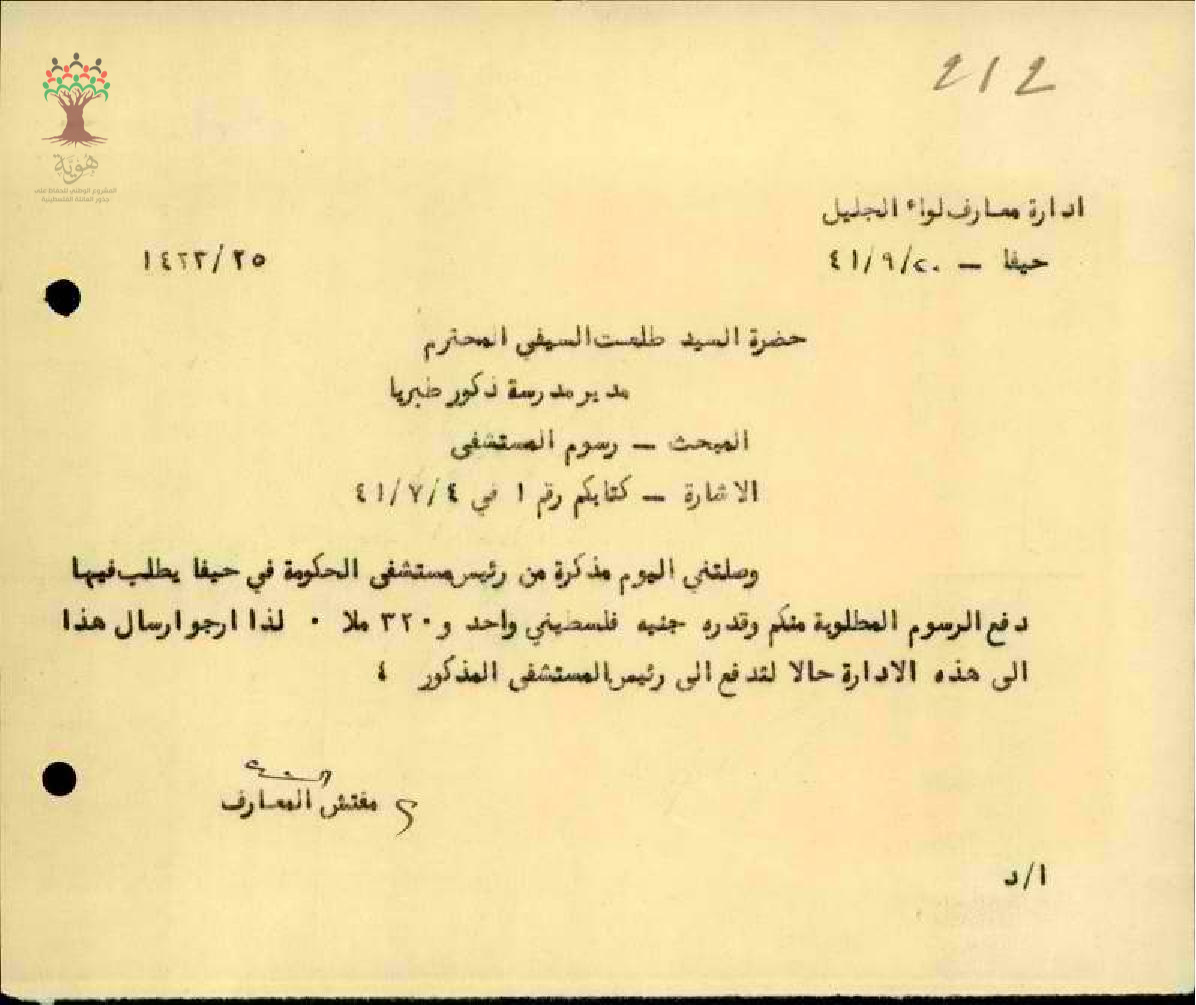 212
هوية
المشروع الوطني للحفاظ على
جذور العائلة الفلسطينية
ادارة معارف لواء الجليل
حيفا – ٤١/٩/٢٠
١٤٢٣/٢٥
حضرة السيد طلعت السيفي المحترم
مدير مدرسة ذكور طبريا
المبحث – رسوم المستشفى
الاشارة – كتابكم رقم ١ في ٤١/٧/٤
وصلتني اليوم مذكرة من رئيس مستشفى الحكومة في حيفا يطلب فيها
دفع الرسوم المطلوبة منكم وقدره جنيه فلسطيني واحد و ٣٢٠ ملا ٠ لذا ارجو ارسال هذا
الى هذه الادارة حالا لتدفع الى رئيس المستشفى المذكور ٤
مفتش المعارف
ا/د